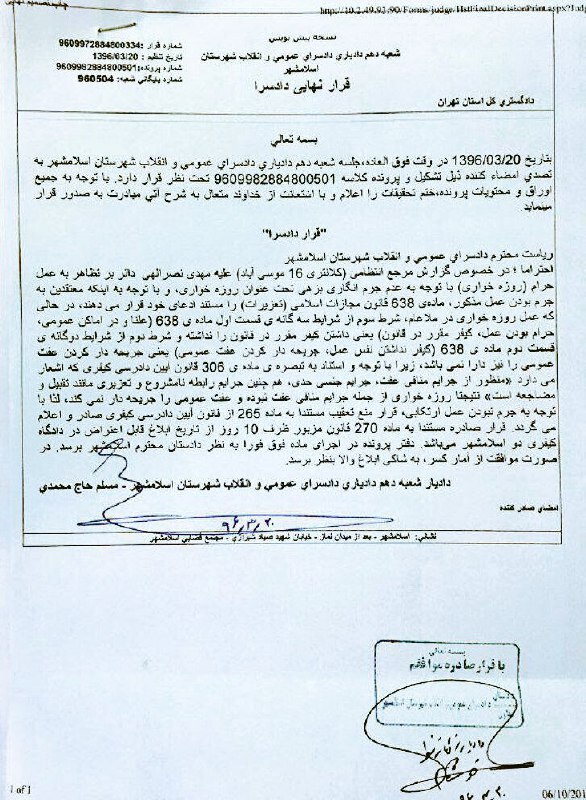 چاپ تصمیم نهایی
http://10.2.49.92:90/Forms/judge/HstFinalDecisionPrint.aspx?Jud
نسخه پیش نویس
شعبه دهم دادیاري دادسراي عمومي و انقلاب شهرستان
اسلامشهر
قرار نهایی دادسرا
شماره قرار : 9609972884800334
تاریخ تنظیم : 1396/03/20
شماره پرونده: 9609982884800501
شماره بایگاني شعبه: 960504
دادگستري کل استان تهران
بسمه تعالي
بتاریخ 1396/03/20 در وقت فوق العاده،جلسه شعبه دهم دادیاري دادسراي عمومي و انقلاب شهرستان اسلامشهر به
تصدي امضاء کننده ذیل تشکیل و پرونده کلاسه 9609982884800501 تحت نظر قرار دارد. با توجه به جمیع
اوراق و محتویات پرونده،ختم تحقیقات را اعلام و با استعانت از خداوند متعال به شرح آتي مبادرت به صدور قرار
مینماید
"قرار دادسرا"
ریاست محترم دادسراي عمومي و انقلاب شهرستان اسلامشهر
احتراما ؛ در خصوص گزارش مرجع انتظامي (کلانتري 16 موسي آباد) علیه مهدي نصرالهي دائر بر تظاهر به عمل
حرام (روزه خواري) با توجه به عدم جرم انگاري برهي تحت عنوان روزه خواري، و با توجه به اینکه معتقدین به
جرم بودن عمل مذکور، ماده‌ي 638 قانون مجازات اسلامي (تعزیرات) را مستند ادعاي خود قرار مي دهند، در حالي
که عمل روزه خواري در ملاءعام، شرط سوم از شرایط سه گانه ي قسمت اول ماده ي 638 (علنا و در اماکن عمومي،
حرام بودن عمل، کیفر مقرر در قانون) یعني داشتن کیفر مقرر در قانون را نداشته و شرط دوم از شرایط دوگانه ي
قسمت دوم ماده ي 638 (کیفر نداشتن نفس عمل، جریحه دار کردن عفت عمومي) یعني جریحه دار کردن عفت
عمومي را نیز دارا نمي باشد، زیرا با توجه و استناد به تبصره ي ماده ي 306 قانون آیین دادرسي کیفري که اشعار
مي دارد «منظور از جرایم منافي عفت، جرایم جنسي حدي، هم چنین جرایم رابطه نامشروع و تعزیري مانند تقبیل و
مضاجعه است» نتیجتا روزه خواري از جمله جرایم منافي عفت نبوده و عفت عمومي را جریحه دار نمي کند، لذا با
توجه به جرم نبودن عمل ارتکابي، قرار منع تعقیب مستندا به ماده 265 از قانون آیین دادرسي کیفري صادر و اعلام
مي گردد. قرار صادره مستندا به ماده 270 قانون مزبور ظرف 10 روز از تاریخ ابلاغ قابل اعتراض در دادگاه
کیفري دو اسلامشهر مي‌باشد. دفتر پرونده در اجراي ماده فوق فورا به نظر دادستان محترم اسلامشهر برسد. در
صورت موافقت از آمار کسر، به شاکي ابلاغ والا بنظر برسد.
دادیار شعبه دهم دادیاري دادسراي عمومي و انقلاب شهرستان اسلامشهر - مسلم حاج محمدي
امضاي صادر کننده
۹۶/۳/۲۰
نشاني: اسلامشهر - بعد از میدان نماز - خیابان شهید صیاد شیرازي - مجتمع قضایي اسلامشهر
بسمه تعالي
با قرار صادره موافقم
دادستان
دادسراي عمومي و انقلاب شهرستان اسلامشهر
۹۶/۳/۲۰
1 of 1
06/10/201